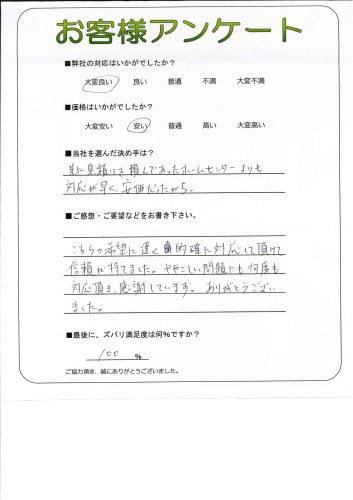 お客様アンケート
■弊社の対応はいかがでしたか?
大変良い 良い 普通 不満 大変不満
■価格はいかがでしたか?
大変安い 安い 普通 高い 大変高い
■当社を選んだ決め手は?
先に見積りを頼んであったホームセンターよりも
対応が早く、安価だったから。
■ご感想・ご要望などをお書き下さい。
こちらの希望に速く的確に対応して頂けて
信頼が持てました。ややこしい問題にも何度も
対応頂き、感謝しています。ありがとうござい
ました。
■最後に、ズバリ満足度は何%ですか?
100 %
ご協力頂き、誠にありがとうございました。